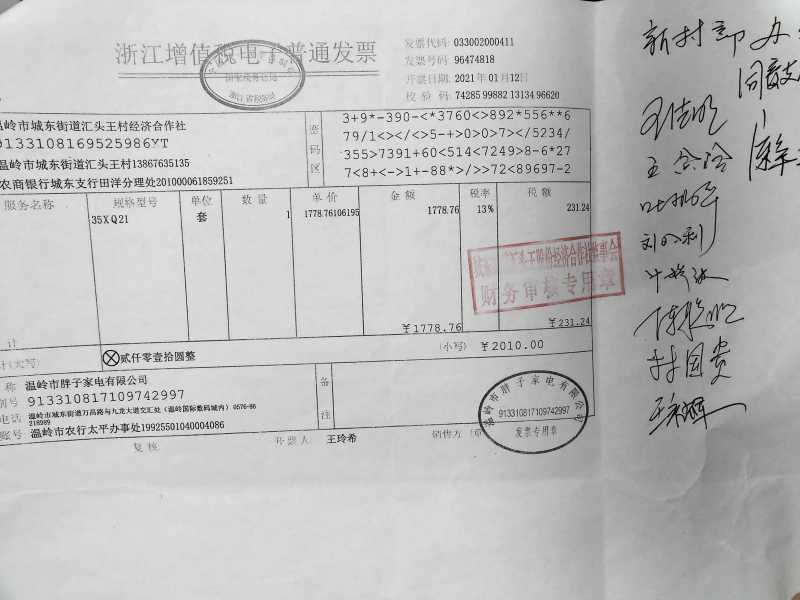 浙江增值税电子普通发票
国家税务总局
浙江省税务局
发票代码: 033002000411
发票号码: 96474818
开票日期: 2021 年 01 月 12 日
校 验 码: 74285 99882 13134 96620
温岭市城东街道汇头王村经济合作社
9133108169525986YT
温岭市城东街道汇头王村13867635135
农商银行城东支行田洋分理处201000061859251
密码区
3+9*-390-<*3760<>892*556**6
79/1<></<>5-+>0>0>7></5234/
355>7391+60<514<7249>8-6*27
7<8+<->1+-88*>/>>72<89697-2
服务名称 规格型号 单位 数 量 单 价 金 额 税率 税 额
35XQ21 套 1 1778.76106195 1778.76 13% 231.24
财务审核专用章
计 ￥1778.76 ￥231.24
计(大写) ⊗贰仟零壹拾圆整 (小写) ￥2010.00
称 温岭市胖子家电有限公司
别号 913310817109742997
电话 温岭市城东街道万昌路与九龙大道交汇处（温岭国际数码城内） 0576-86
218989
账号 温岭市农行太平办事处19925501040004086
备注
复核 开票人: 王玲希 销售方: (章
温岭市胖子家电有限公司
913310817109742997
发票专用章
新村部办
同意支
林国贵